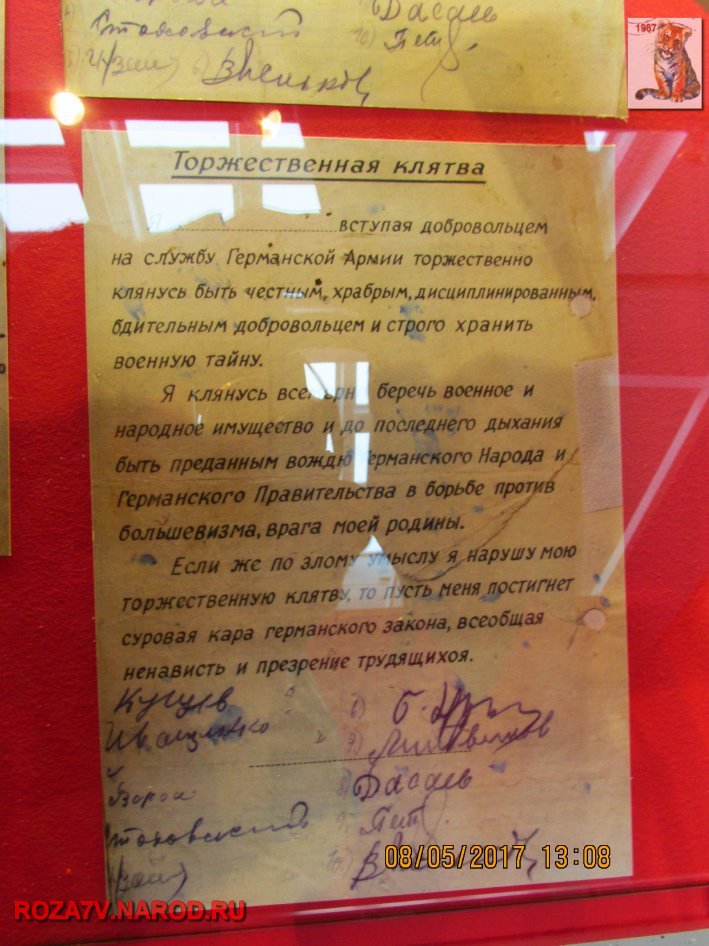 Дасаев
1987
Торжественная клятва
Я вступая добровольцем
на службу Германской Армии торжественно
клянусь быть честным, храбрым, дисциплинированным,
бдительным добровольцем и строго хранить
военную тайну.
Я клянусь беречь военное и
народное имущество и до последнего дыхания
быть преданным вождю Германского Народа и
Германского Правительства в борьбе против
большевизма, врага моей родины.
Если же по злому умыслу я нарушу мою
торжественную клятву, то пусть меня постигнет
суровая кара германского закона, всеобщая
ненависть и презрение трудящихоя.
Иващенко
Дасаев
08/05/2017 13:08
ROZA7V.NAROD.RU